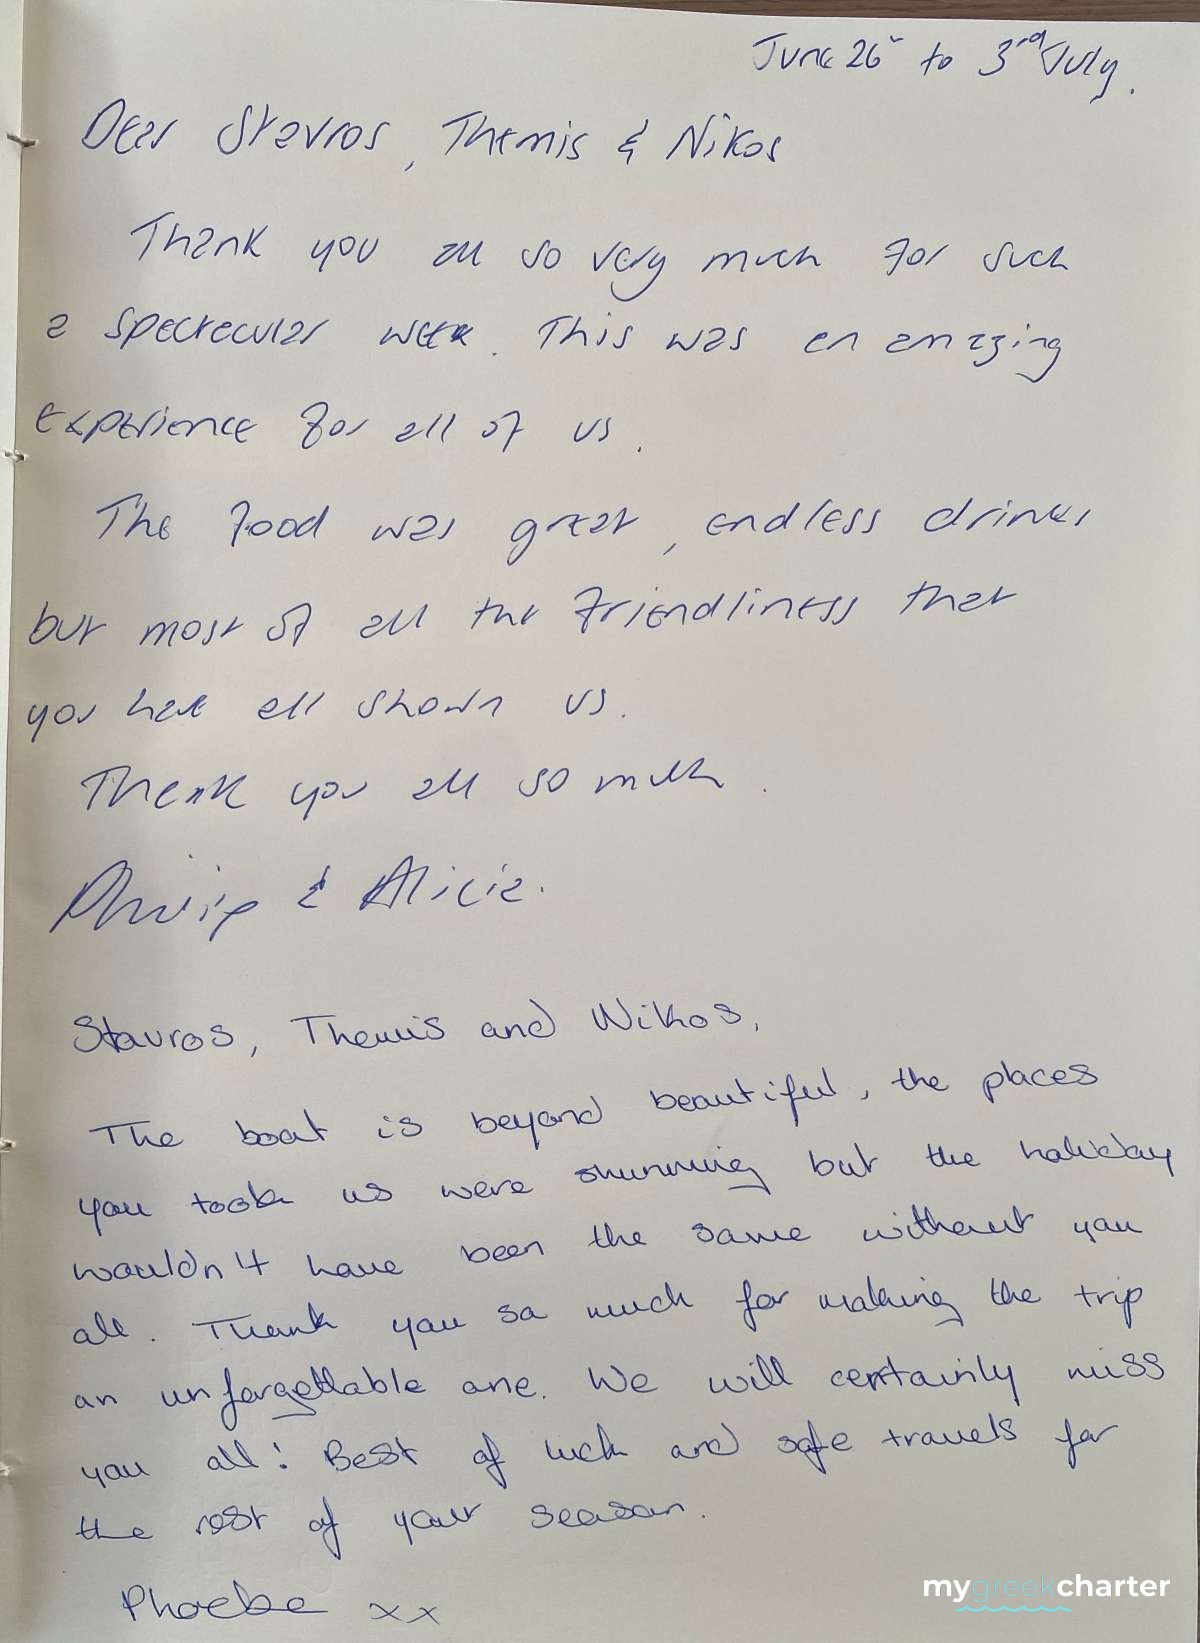 June 26 to 3rd July.
Dear Stavros, Themis & Nikos
Thank you all so very much for such
a spectacular week. This was an amazing
experience for all of us.
The food was great, endless drinks
but most of all the friendliness that
you have all shown us.
Thank you all so much.
Philip & Alicia.
Stavros, Themis and Nikos,
The boat is beyond beautiful, the places
you took us were stunning but the holiday
wouldn't have been the same without you
all. Thank you so much for making the trip
an unforgettable one. We will certainly miss
you all! Best of luck and safe travels for
the rest of your season.
Phoebe xx
mygreekcharter